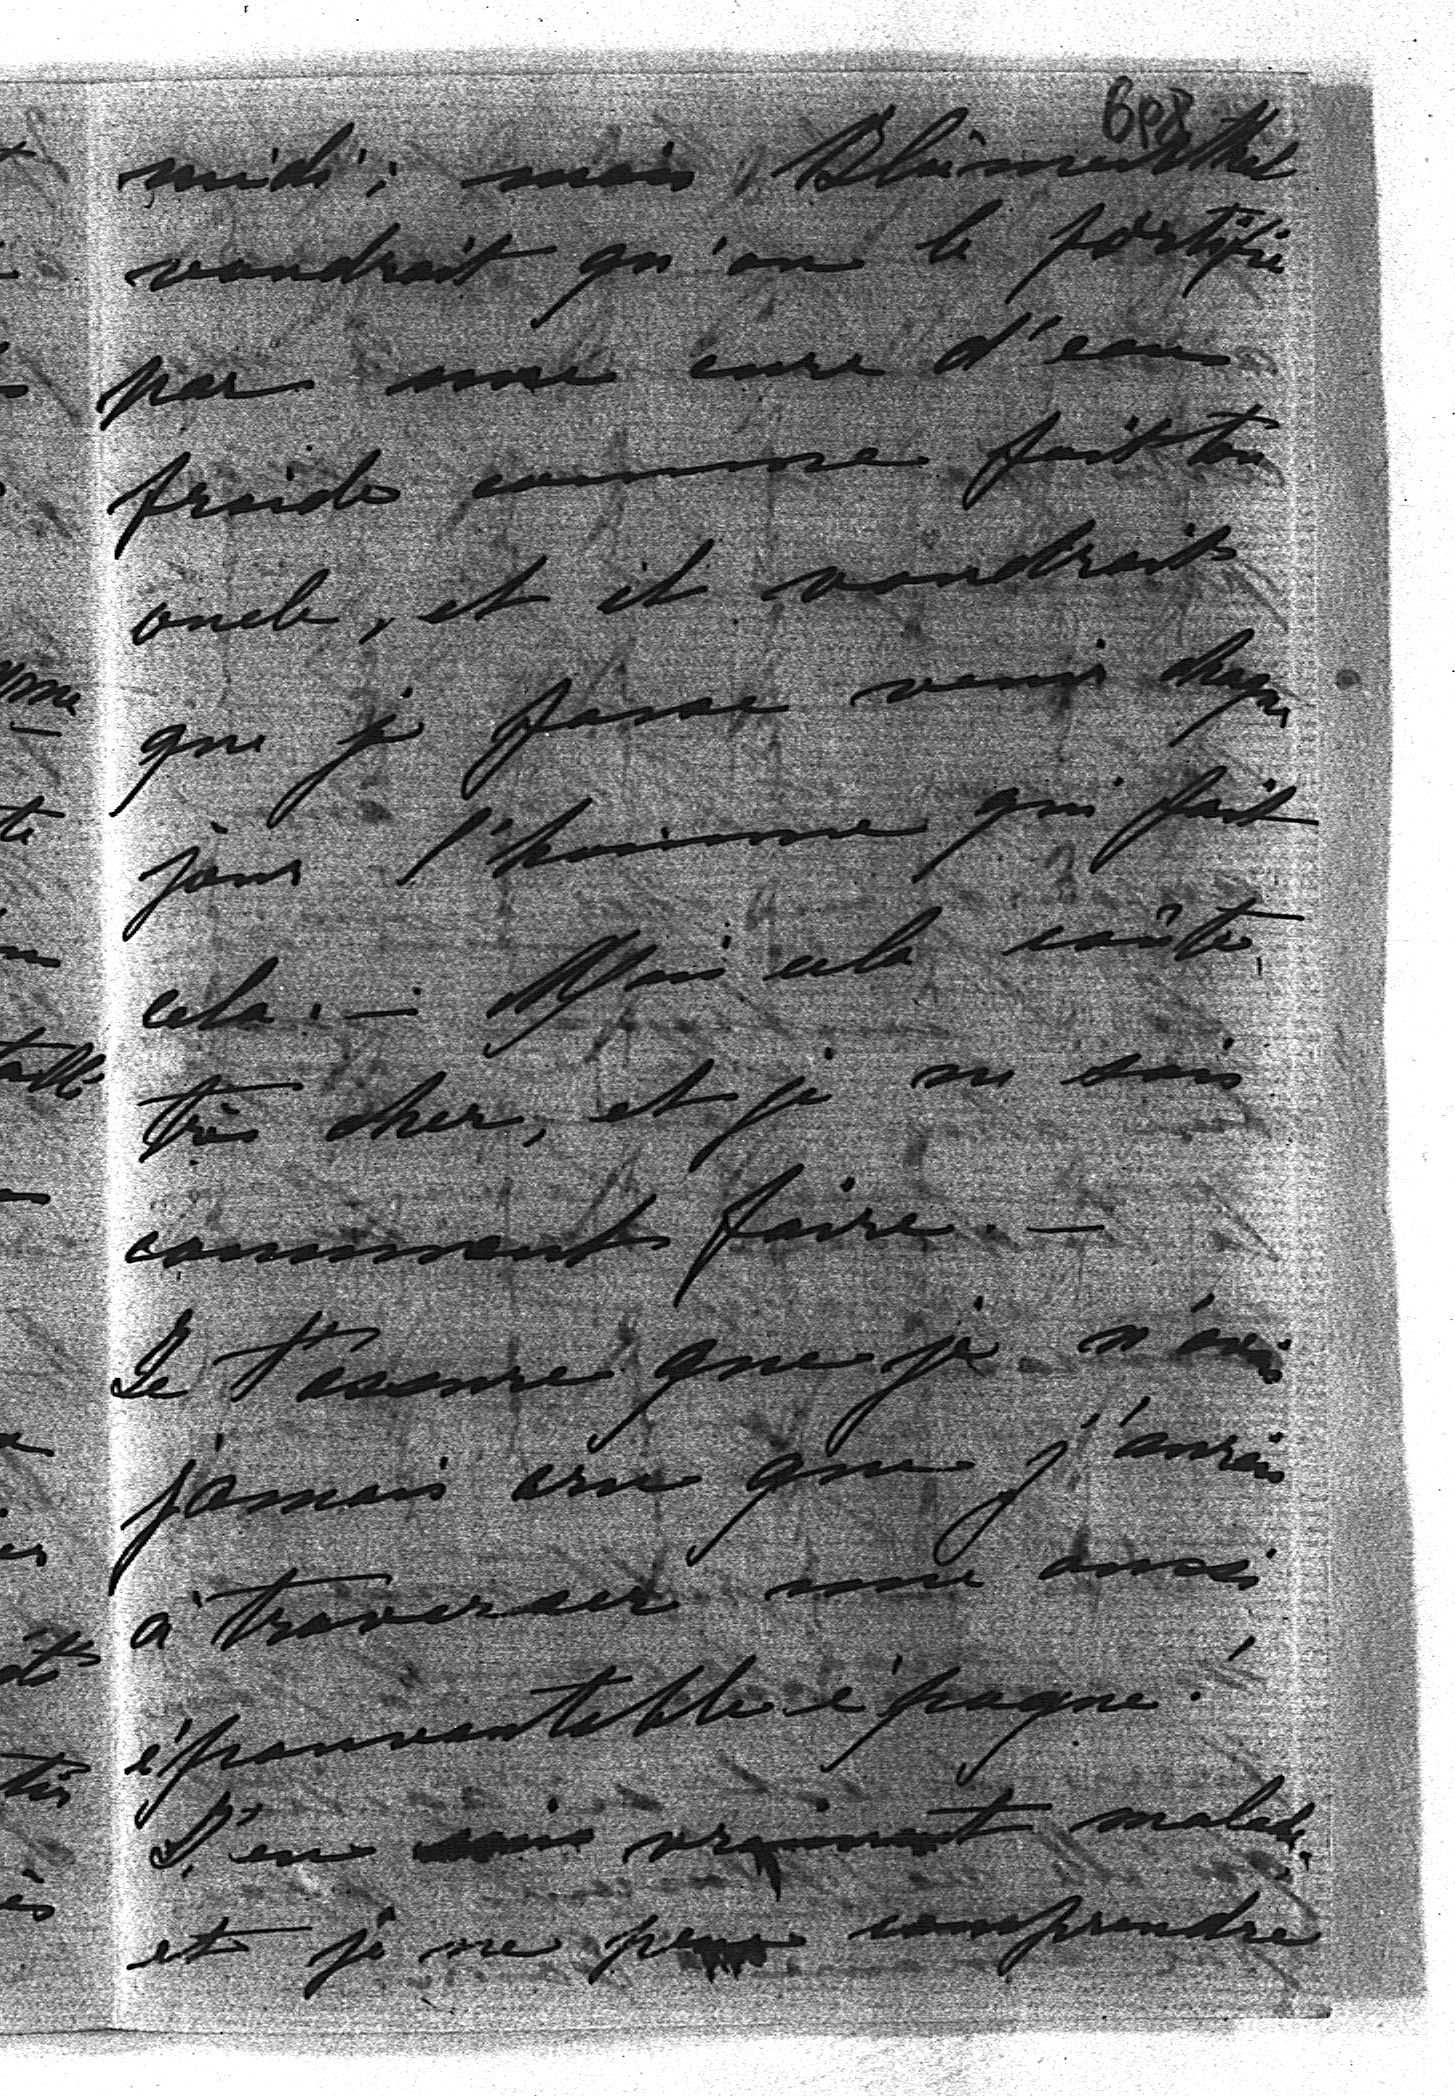 midi; mais Blumenthal
voudrait qu'on le fortifie
par une cure d'eau
froide comme fait ton
oncle, et il voudrait
que je fasse venir chaque
jour l'homme qui fait
cela. — Mais cela coûte
très cher, et je ne sais
comment faire. —
Je t'assure que je n'avais
jamais cru que j'aurais
à traverser une aussi
épouvantable époque!
J'en suis vraiment malade,
et je ne peux comprendre